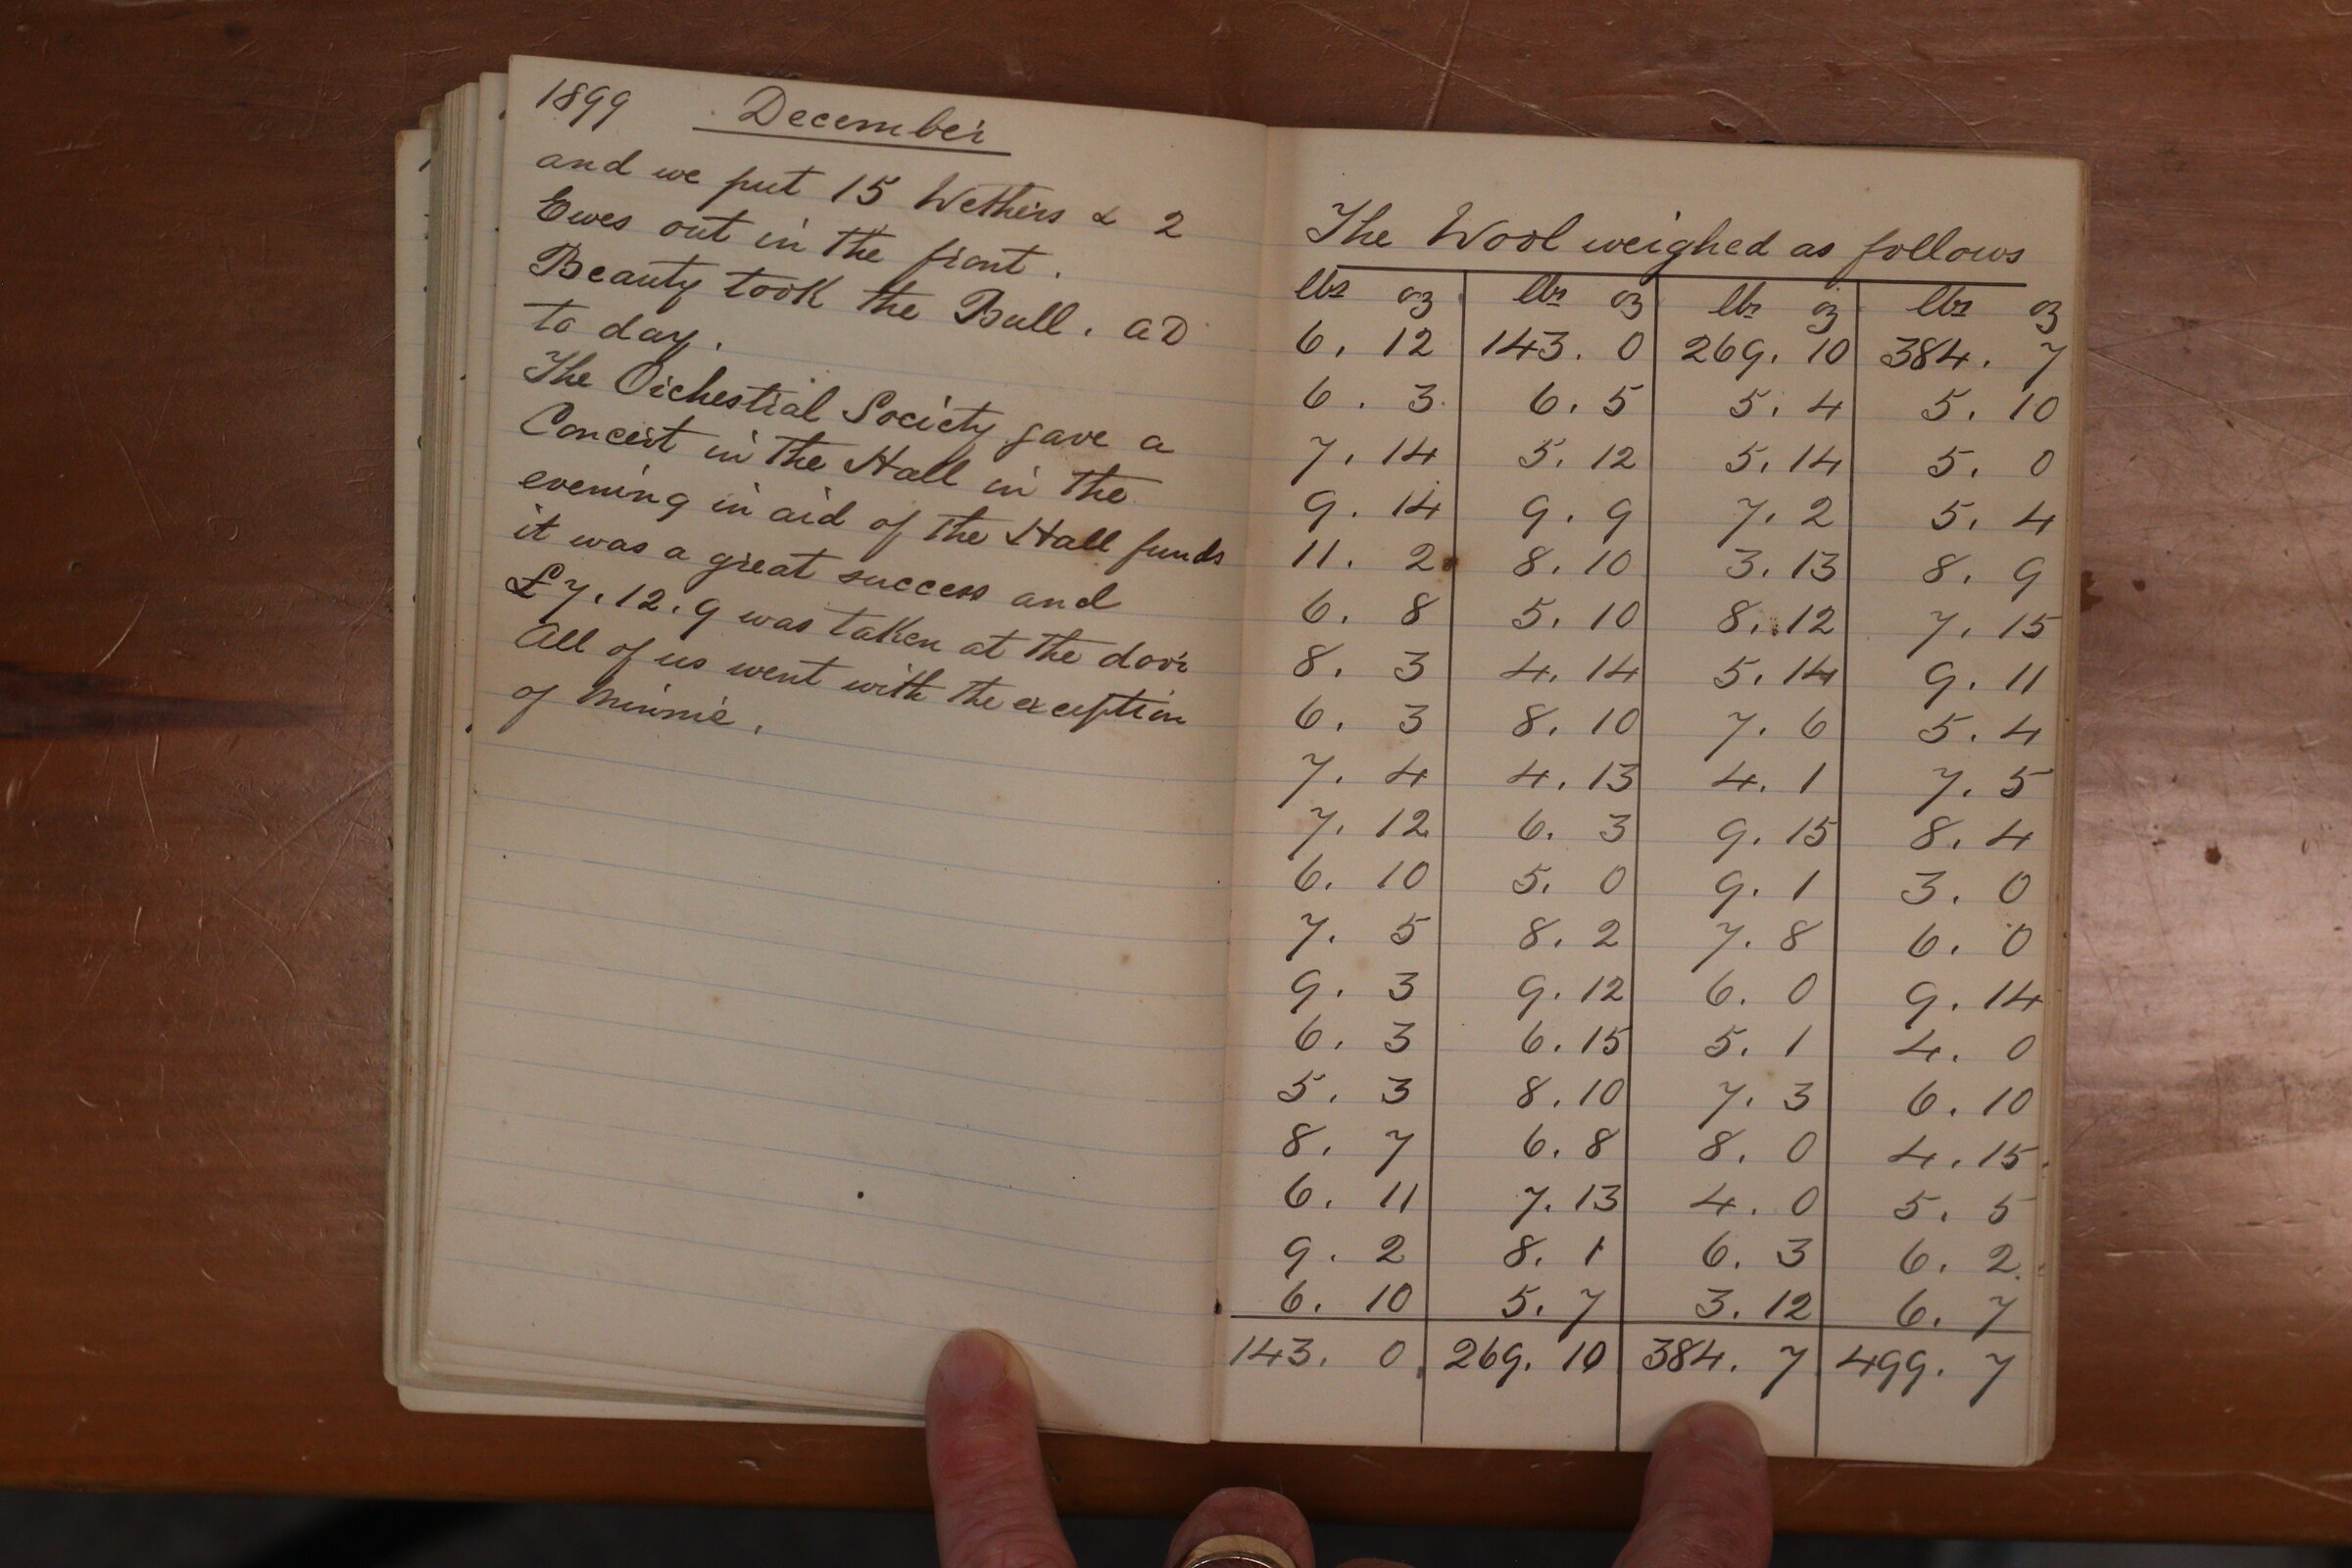 1899 December
and we put 15 Wethers & 2
Ewes out in the front.
Beauty took the Bull. AD
to day.
The Orchestral Society gave a
Concert in the Hall in the
evening in aid of the Hall funds
it was a great success and
£7.12.9 was taken at the door
All of us went with the exception
of Minnie.
The Wool weighed as follows
lbs oz lbs oz lbs oz lbs oz
6. 12 143. 0 269. 10 384. 7
6. 3 6. 5 5. 4 5. 10
7. 14 5. 12 5. 14 5. 0
9. 14 9. 9 7. 2 5. 4
11. 2 8. 10 3. 13 8. 9
6. 8 5. 10 8. 12 7. 15
8. 3 4. 14 5. 14 9. 11
6. 3 8. 10 7. 6 5. 4
7. 4 4. 13 4. 1 7. 5
7. 12 6. 3 9. 15 8. 4
6. 10 5. 0 9. 1 3. 0
7. 5 8. 2 7. 8 6. 0
9. 3 9. 12 6. 0 9. 14
6. 3 6. 15 5. 1 4. 0
5. 3 8. 10 7. 3 6. 10
8. 7 6. 8 8. 0 4. 15
6. 11 7. 13 4. 0 5. 5
9. 2 8. 1 6. 3 6. 2
6. 10 5. 7 3. 12 6. 7
143. 0 269. 10 384. 7 499. 7